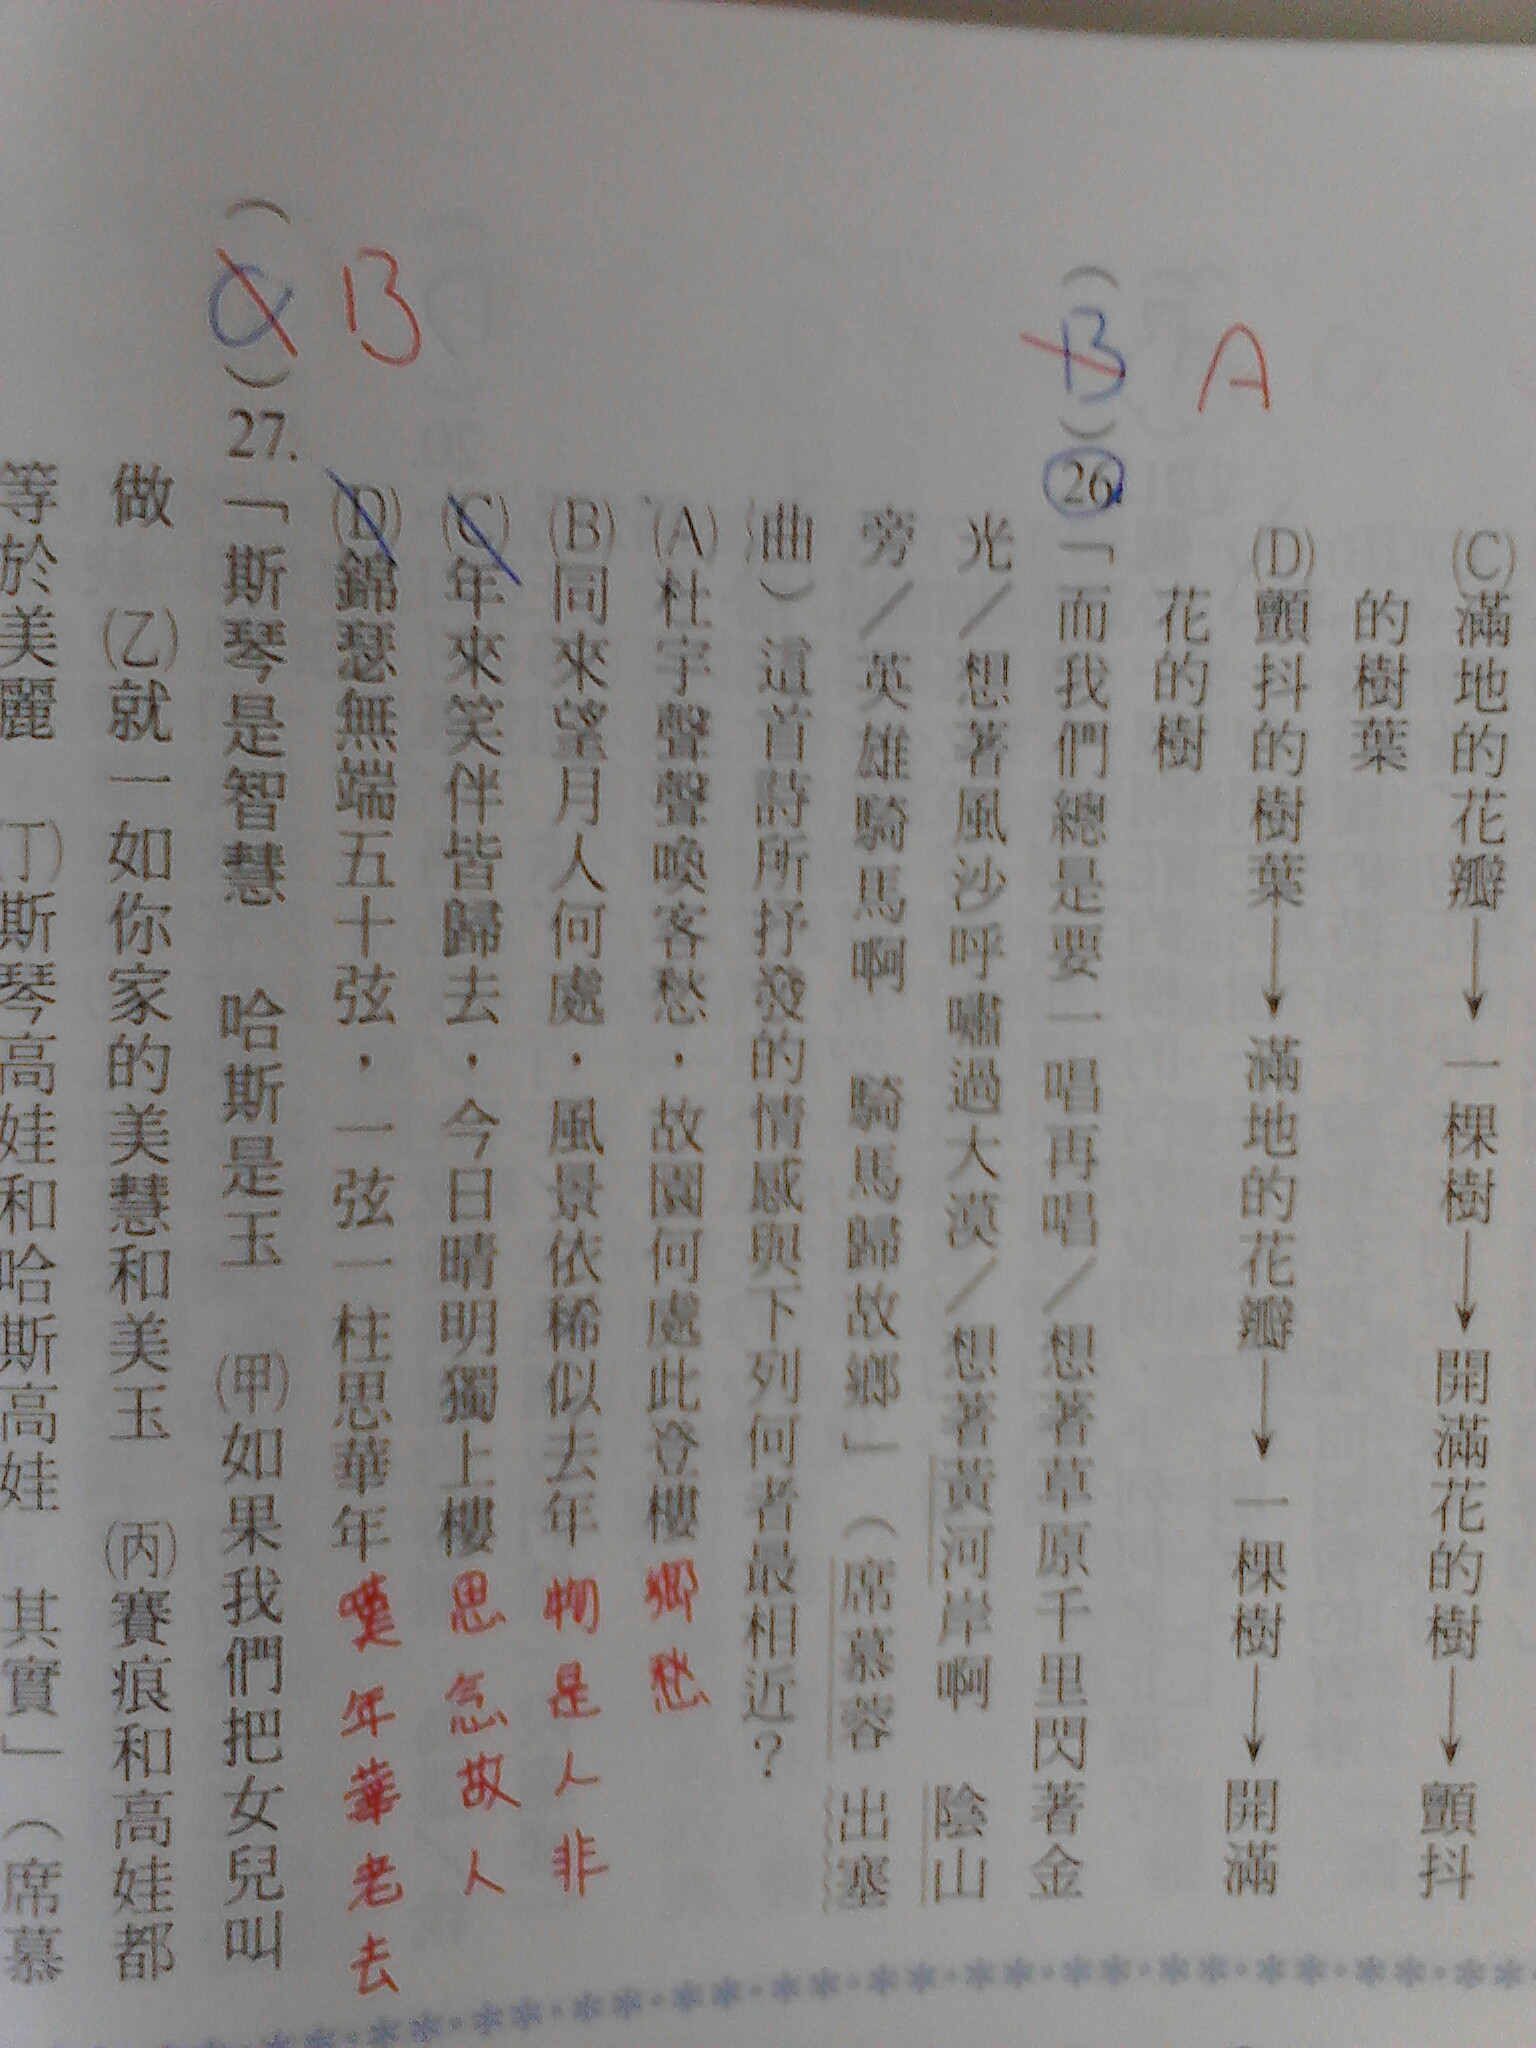 (C)滿地的花瓣→一棵樹→開滿花的樹→顫抖
的樹葉
(D)顫抖的樹葉→滿地的花瓣→一棵樹→開滿
花的樹
A
(B)26.「而我們總是要一唱再唱/想著草原千里閃著金
光/想著風沙呼嘯過大漠/想著黃河岸啊 陰山
旁/英雄騎馬啊 騎馬歸故鄉」(席慕蓉 出塞
曲)這首詩所抒發的情感與下列何者最相近?
(A)杜宇聲聲喚客愁.故園何處此登樓 鄉愁
(B)同來望月人何處.風景依稀似去年 物是人非
(C)年來笑伴皆歸去.今日晴明獨上樓 思念故人
(D)錦瑟無端五十弦.一弦一柱思華年 嘆年華老去
B
(C)27.「斯琴是智慧 哈斯是玉 (甲)如果我們把女兒叫
做 (乙)就一如你家的美慧和美玉 (丙)賽痕和高娃都
等於美麗 (丁)斯琴高娃和哈斯高娃 其實」(席慕